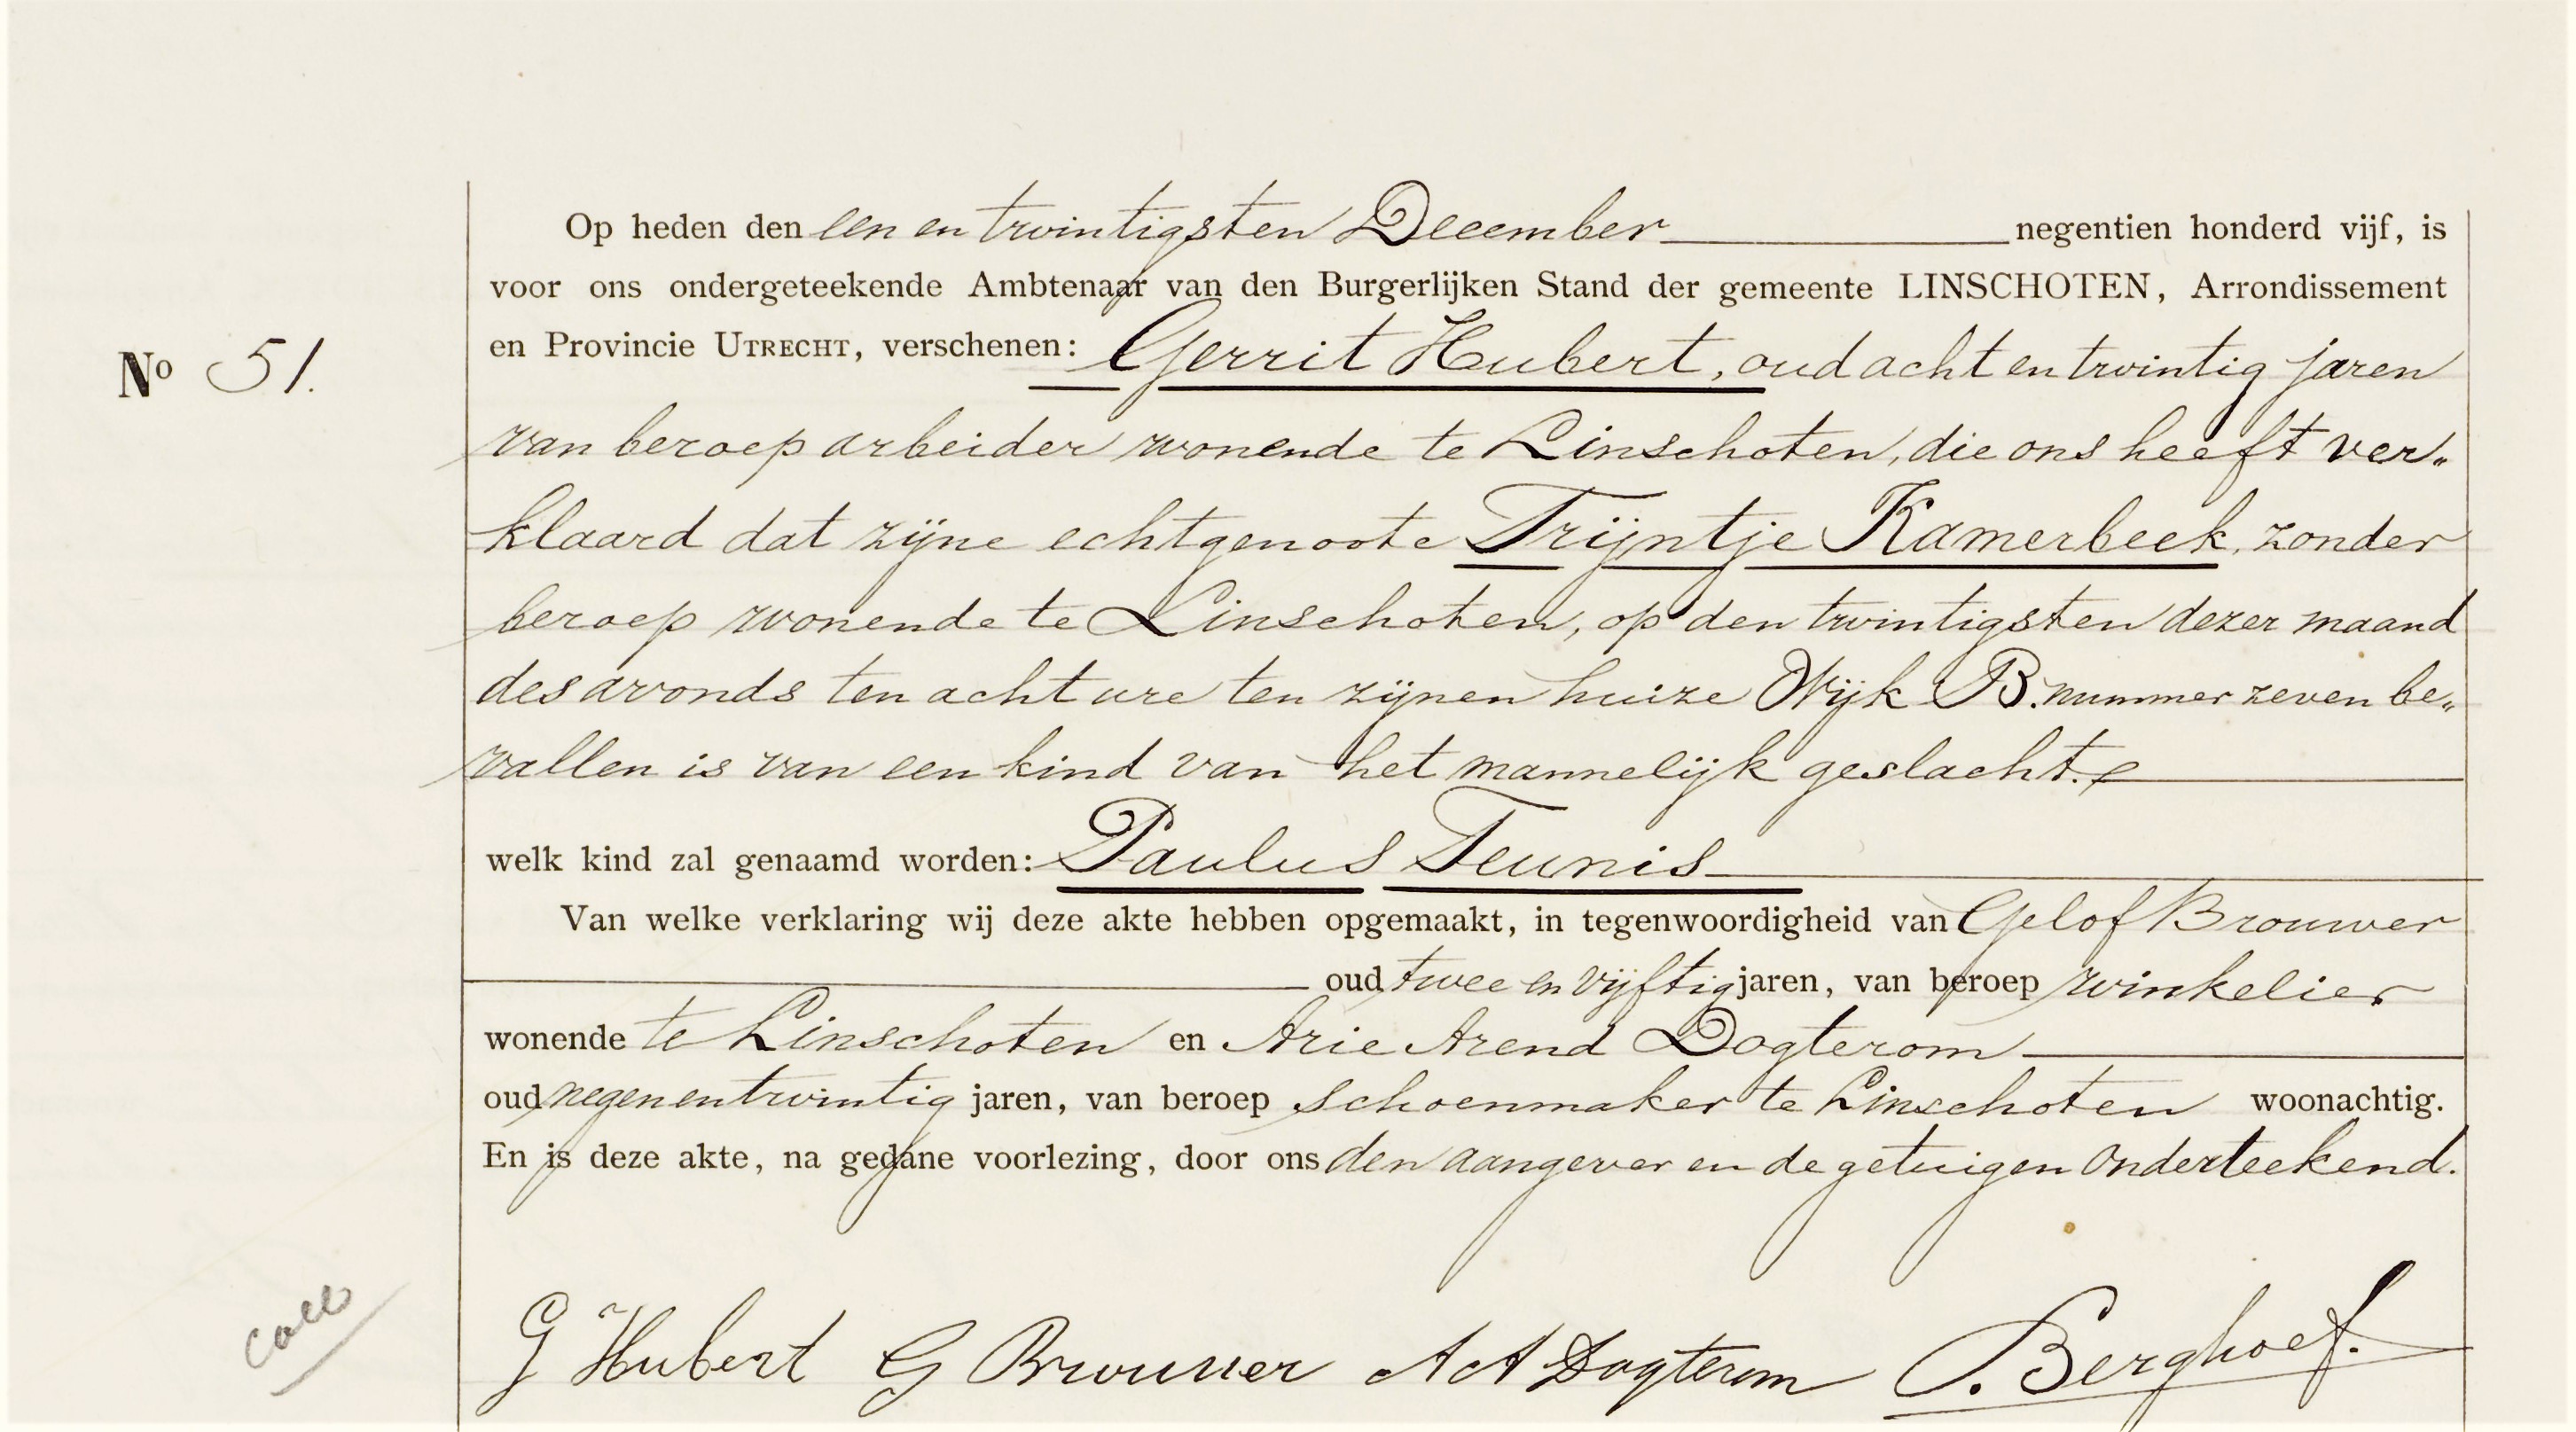 Op heden den een en twintigsten December negentien honderd vijf, is
voor ons ondergeteekende Ambtenaar van den Burgerlijken Stand der gemeente LINSCHOTEN, Arrondissement
en Provincie UTRECHT, verschenen: Gerrit Hubert, oud acht en twintig jaren
No 51.
van beroep arbeider wonende te Linschoten, die ons heeft ver„
klaard dat zijne echtgenoote Trijntje Kamerbeek, zonder
beroep wonende te Linschoten, op den twintigsten dezer maand
des avonds ten acht ure ten zijnen huize Wijk B. nummer zeven be„
vallen is van een kind van het mannelijk geslacht.
welk kind zal genaamd worden: Paulus Teunis
Van welke verklaring wij deze akte hebben opgemaakt, in tegenwoordigheid van Gelof Brouwer
oud twee en vijftig jaren, van beroep winkelier
wonende te Linschoten en Arie Arend Dogterom
oud negen en twintig jaren, van beroep schoenmaker te Linschoten woonachtig.
En is deze akte, na gedane voorlezing, door ons den aangever en de getuigen onderteekend.
G Hubert G Brouwer A A Dogterom P. Berghoef.